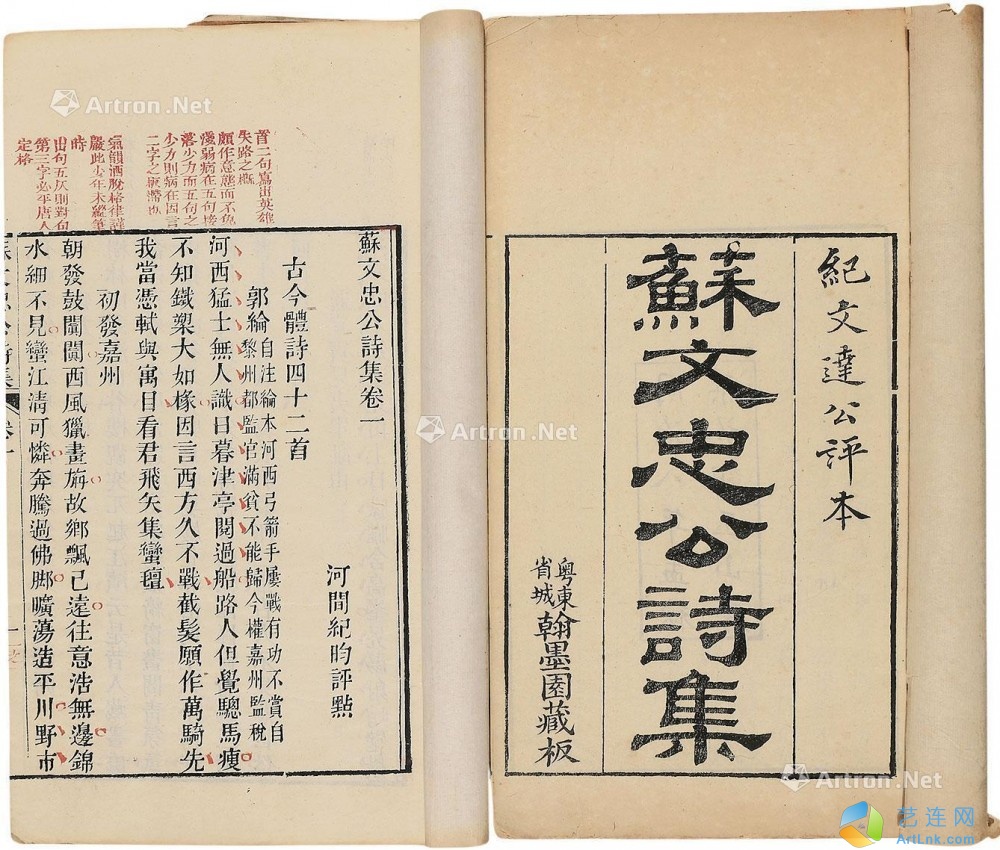 紀文達公評本
蘇文忠公詩集
粵東
省城
翰墨園藏板
首二句寫出英雄
失路之概
頗作意態而不免
淺弱病在五句接
落少力而五句之
少力則病在因言
二字之
氣韻洒脫格律謹
嚴此少年未縱筆
時
出句五仄則對句
第三字必平唐人
定格
蘇文忠公詩集卷一
河間紀昀評點
古今體詩四十二首
郭綸
自注綸本河西弓箭手屢戰有功不賞自
黎州都監官滿貧不能歸今權嘉州監稅
河西猛士無人識日暮津亭閱過船路人但覺驄馬瘦
不知鐵槊大如椽因言西方久不戰截髮願作萬騎先
我當憑軾與寓目看君飛矢集蠻氊
初發嘉州
朝發鼓闐闐西風獵畫旃故鄉飄已遠往意浩無邊錦
水細不見蠻江清可憐奔騰過佛脚曠蕩造平川野市
Artron.Net
Artron.Net
Artron.Net
Artron.Net
艺连网
ArtLnk.com